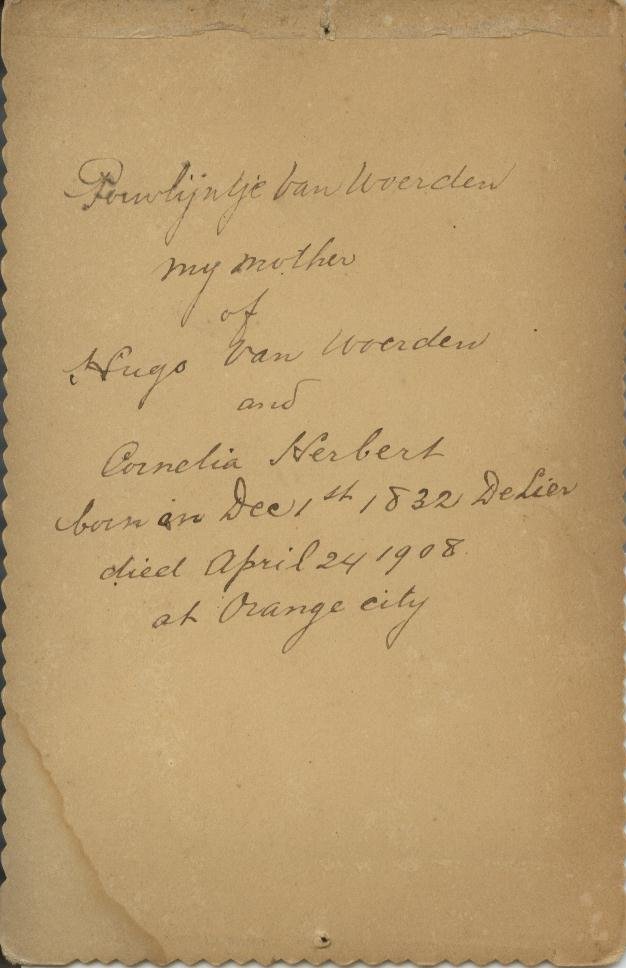 Pouwlijntje Van Woerden
my mother
of
Hugo Van Woerden
and
Cornelia Herbert
born in Dec 1st 1832 De Lier
died April 24 1908
at Orange city